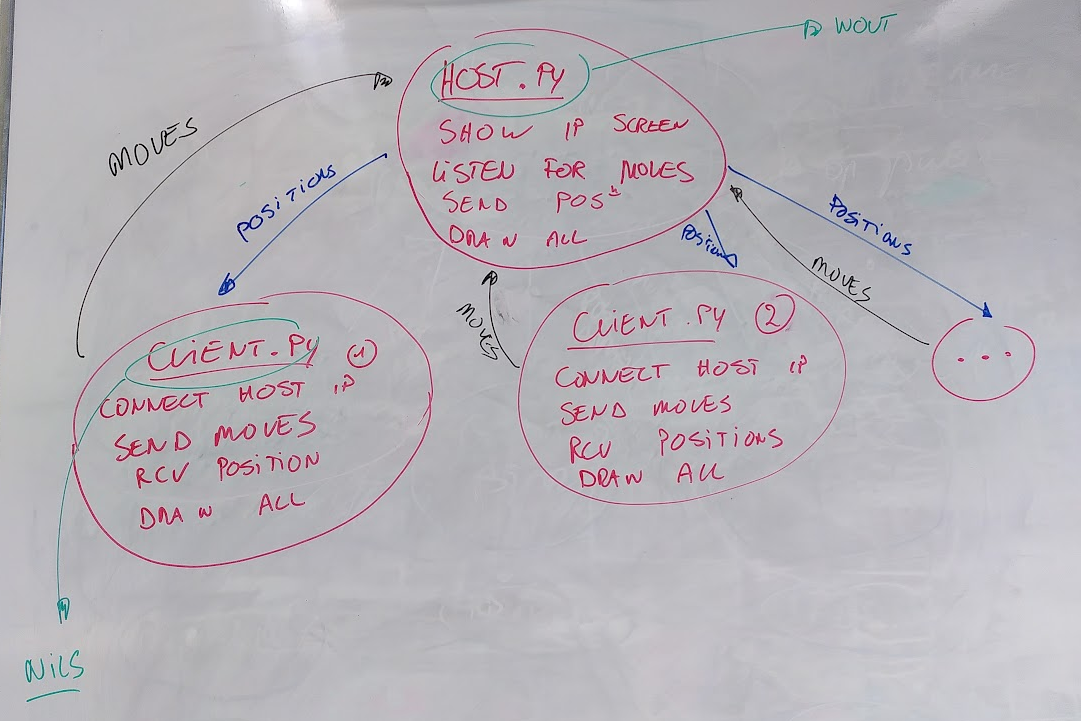 WOUT
HOST.PY
SHOW IP SCREEN
LISTEN FOR MOVES
SEND POS
DRAW ALL
MOVES
POSITIONS
POSITIONS
POSITIONS
MOVES
MOVES
CLIENT.PY 1
CONNECT HOST IP
SEND MOVES
RCV POSITION
DRAW ALL
CLIENT.PY 2
CONNECT HOST IP
SEND MOVES
RCV POSITIONS
DRAW ALL
...
NILS